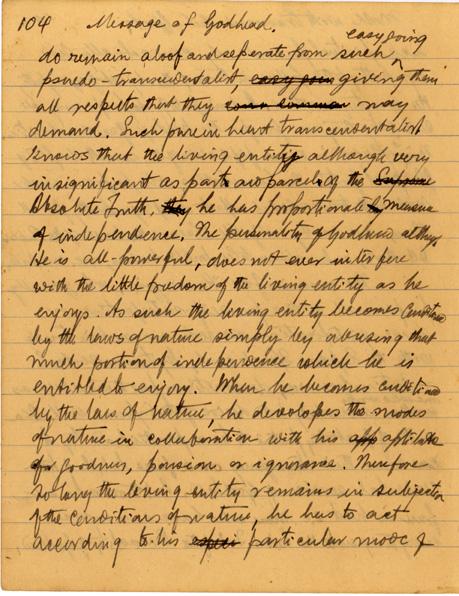 104 Message of Godhead.
easy going
do remain aloof and seperate from such
psuedo-transcendentalist, easy goin giving them
all respects that they can common may
demand. Such pure in heart transcendentalist
knows that the living entity although very
insignificant as part and parcel of the Supreme
Absolute Truth, they he has proportionately measure
of independence. The personality of Godhead although
He is all-powerful, does not ever interfere
with the little freedom of the living entity as he
enjoys. As such the living entity becomes conditioned
by the laws of nature simply by abusing that
much portion of independence which he is
entitled to enjoy. When he becomes conditioned
by the laws of nature, he developes the modes
of nature in collaboration with his app aptitude
for goodness, passion or ignorance. Therefore
so long the living entity remains in subjection
of the conditions of nature, he has to act
according to his particular mode of